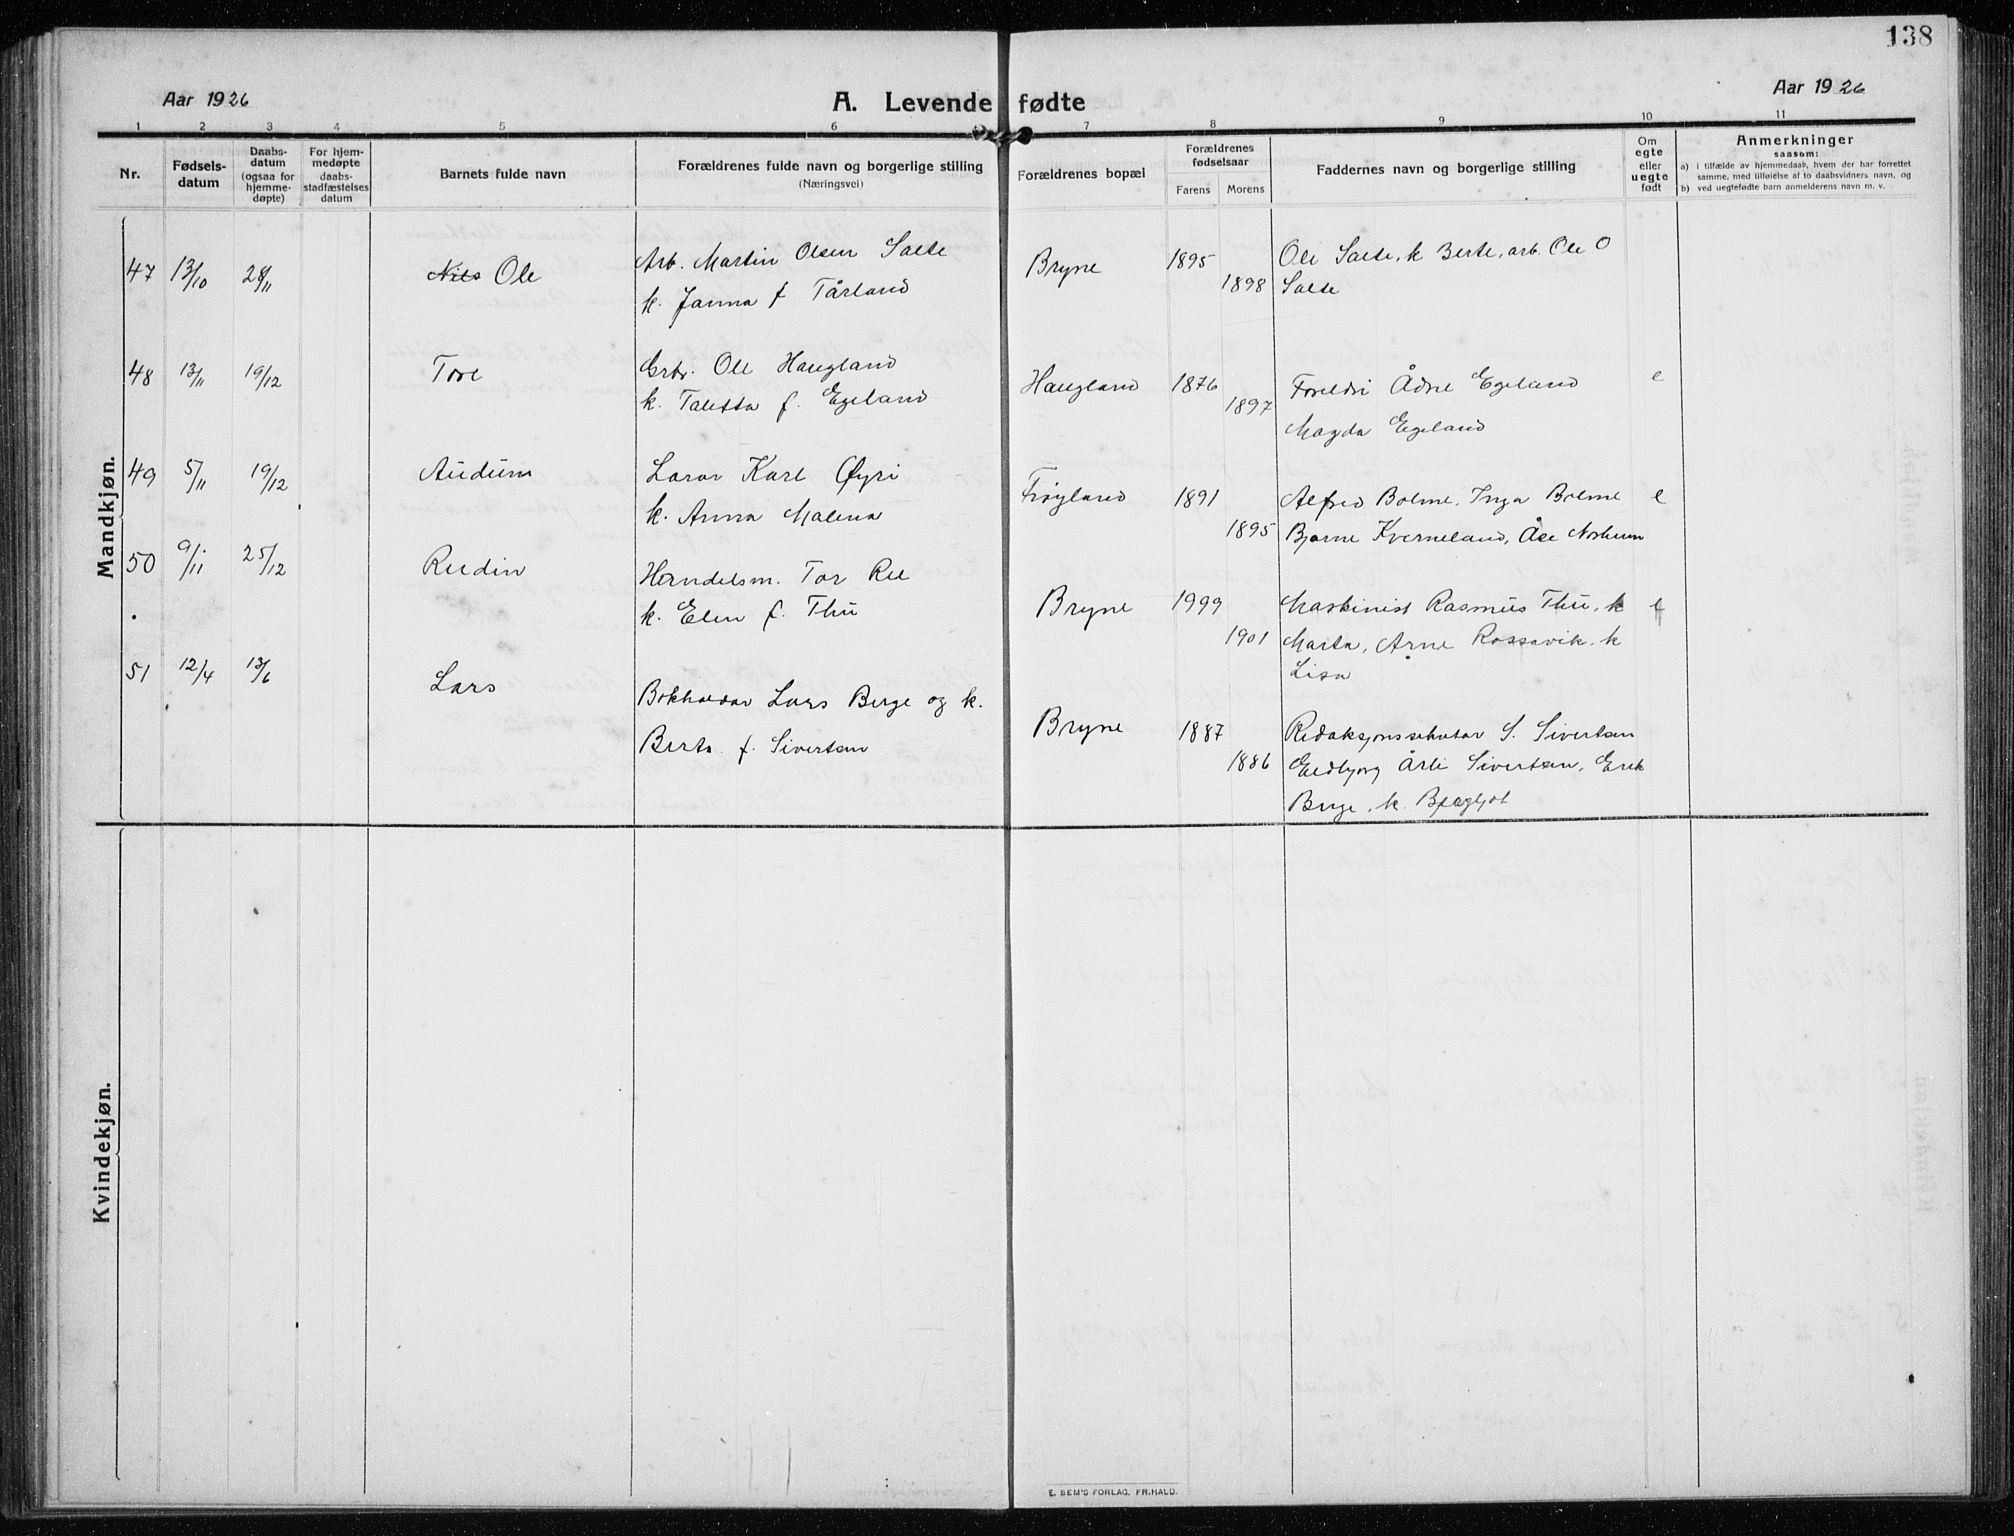 138
Aar 1926
A. Levende fødte
Aar 1926
1 2 3 4 5 6 7 8 9 10 11
Nr.
Fødsels-
datum
Daabs-
datum
(ogsaa for
hjemme-
døpte)
For hjem-
medøpte
daabs-
stadfæstelses
datum
Barnets fulde navn
Forældrenes fulde navn og borgerlige stilling
(Næringsvei)
Forældrenes bopæl
Forældrenes
fødselsaar
Farens Morens
Faddernes navn og borgerlige stilling
Om
egte
eller
uegte
født
Anmerkninger
saasom:
a) i tilfælde av hjemmedaab, hvem der har forrettet
samme, med tilføielse af to daabsvidners navn, og
b) ved uegtefødte barn anmelderens navn m. v.
Mandkjøn.
47 13/10 28/11 Nils Ole
Arb. Martin Olsen Salte
k. Janna f Tårland
Bryne 1895
1898
Ole Salte, k Berte, arb. Ole O
Salte
48 13/11 19/12 Tore
Grbr. Ole Haugland
k. Taletta f. Egeland
Haugland 1876
1897
Foreldri Ådne Egeland e
Magda Egeland
49 5/11 19/12 Audum
Lærar Karl Øyri
k. Anna Malena
Frøyland 1891
1895
Alfred Bolme, Inga Bolme e
Bjarne Kverneland, Åse Norheim
50 9/11 25/12 Reidin
Handelsm. Tor Ree
k. Elen f. Thu
Bryne 1999
1901
Maskinist Rasmus Thu, k e
Marta, Arne Rossavik, k
Lisa
51 12/4 13/6 Lars
Bokhaldar Lars Berge og k.
Berta f. Sivertsen
Bryne 1887
1886
Redaksjonssekretær S. Sivertsen
Eldbjørg Årli Sivertsen, Erik
Berge, k. Bergljot
Kvindekjøn.
E. SEM'S FORLAG, FR.HALD.